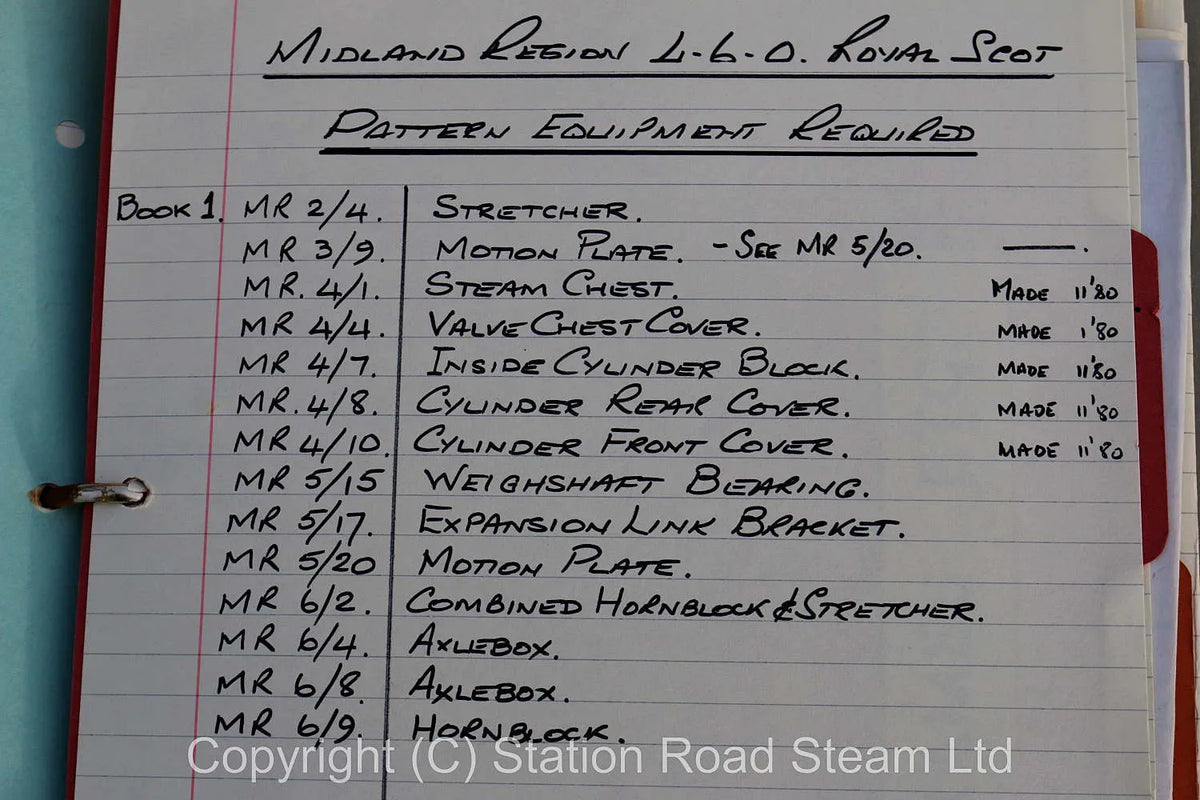 MIDLAND REGION 4-6-0. ROYAL SCOT
PATTERN EQUIPMENT REQUIRED
BOOK 1. MR 2/4. STRETCHER.
MR 3/9. MOTION PLATE. - SEE MR 5/20. ———.
MR. 4/1. STEAM CHEST. MADE 11'80
MR 4/4. VALVE CHEST COVER. MADE 1'80
MR 4/7. INSIDE CYLINDER BLOCK. MADE 11'80
MR. 4/8. CYLINDER REAR COVER. MADE 11'80
MR 4/10. CYLINDER FRONT COVER. MADE 11'80
MR 5/15 WEIGHSHAFT BEARING.
MR 5/17. EXPANSION LINK BRACKET.
MR 5/20 MOTION PLATE.
MR 6/2. COMBINED HORNBLOCK & STRETCHER.
MR 6/4. AXLEBOX.
MR 6/8. AXLEBOX.
MR 6/9. HORNBLOCK.
Copyright (C) Station Road Steam Ltd